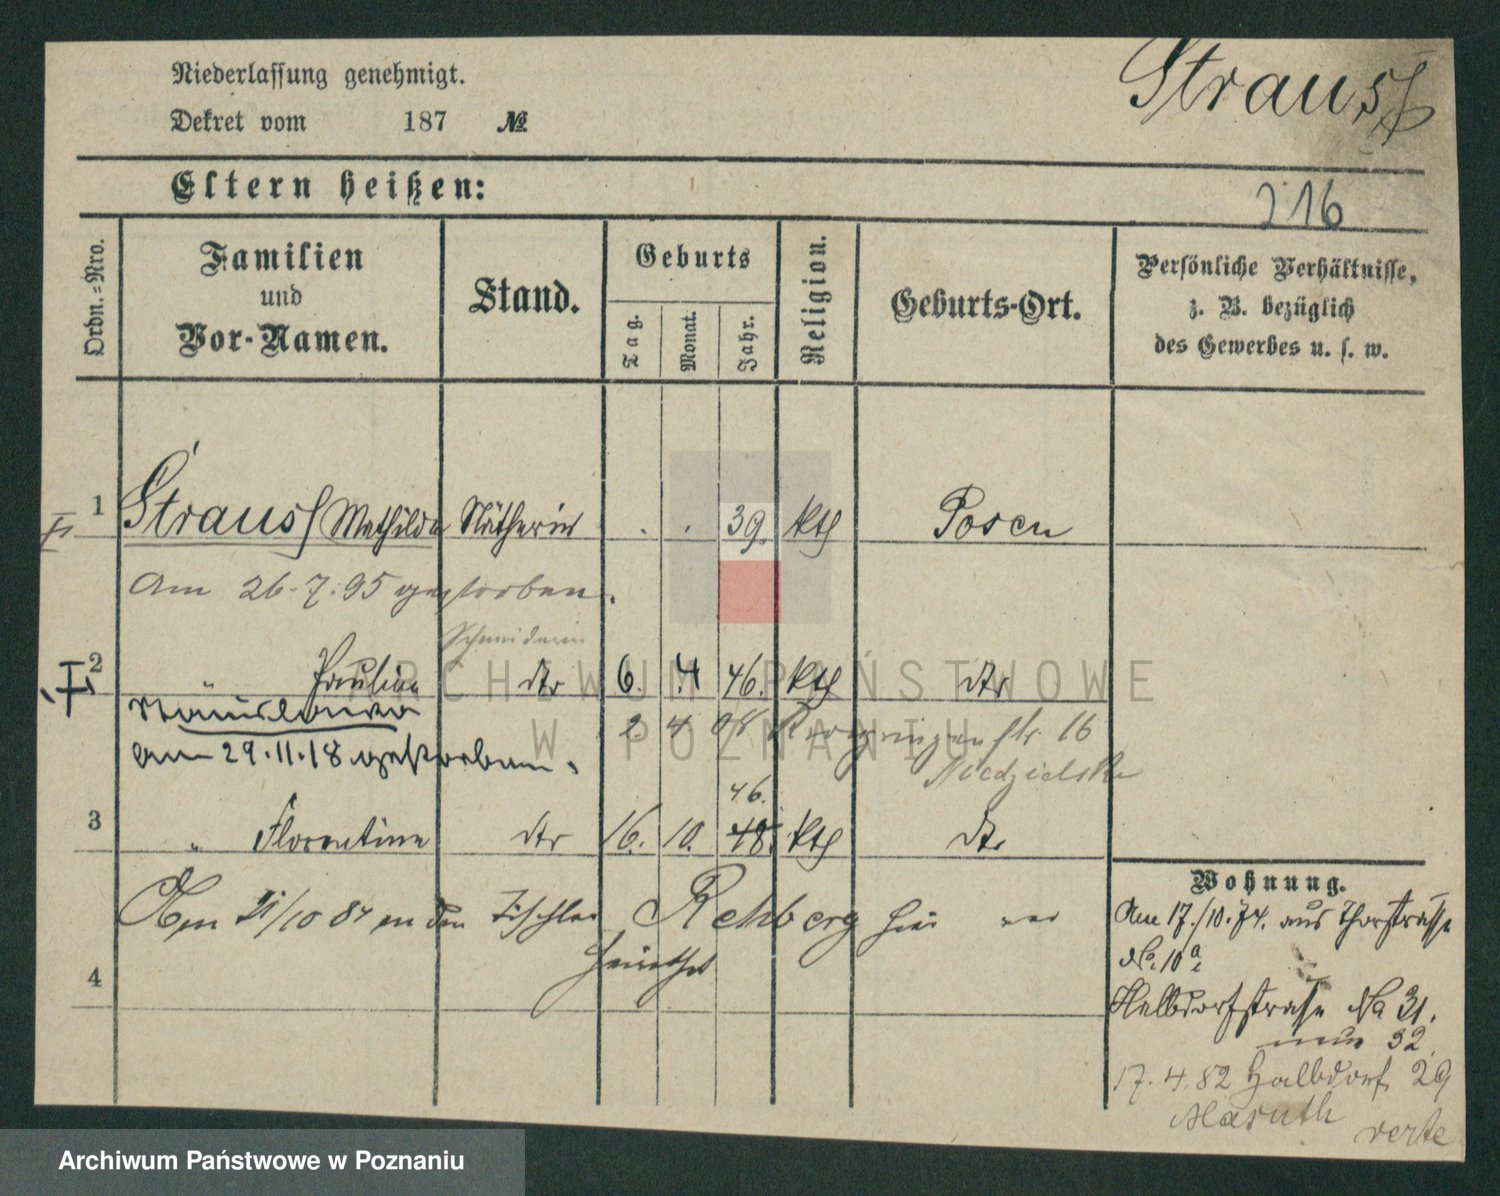 Niederlassung genehmigt.
Strauss
Dekret vom 187 №
Eltern heißen:
216
Ordn.=Nro.
Familien und Vor-Namen.
Stand.
Geburts
Tag.
Monat.
Jahr.
Religion.
Geburts-Ort.
Persönliche Verhältnisse, z. B. bezüglich des Gewerbes u. s. w.
1 Strauss Mathilde Nätherin . . 39. kth Posen
Am 26.7.95 gestorben.
Schneiderin
2 " Pauline dto 6. 4. 46. kth dto
2. 4 str. 16
am 29.11.18 gestorben.
Niedzielska
46.
3 " Florentine dto 16. 10. 48. kth dto
Wohnung.
/10 87 an den Tischler Rehberg hier ver
heirathet
4
Am 17./10.74. aus Thorstrasse
No. 10a
Halbdorfstrasse No 31.
nun 32.
17.4.82 Halbdorf 29
verte
ARCHIWUM PAŃSTWOWE
W POZNANIU
Archiwum Państwowe w Poznaniu